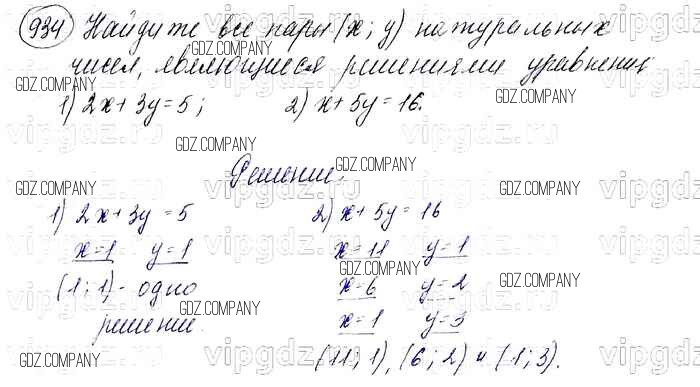 934 Найдите все пары (x; y) натуральных
чисел, являющиеся решениями уравнения:
1) 2x+3y=5; 2) x+5y=16.
Решение.
1) 2x+3y=5 2) x+5y=16
x=1 y=1 x=11 y=1
(1; 1) - одно x=6 y=2
решение. x=1 y=3
(11; 1), (6; 2) и (1; 3).
GDZ.COMPANY
vipgdz.ru